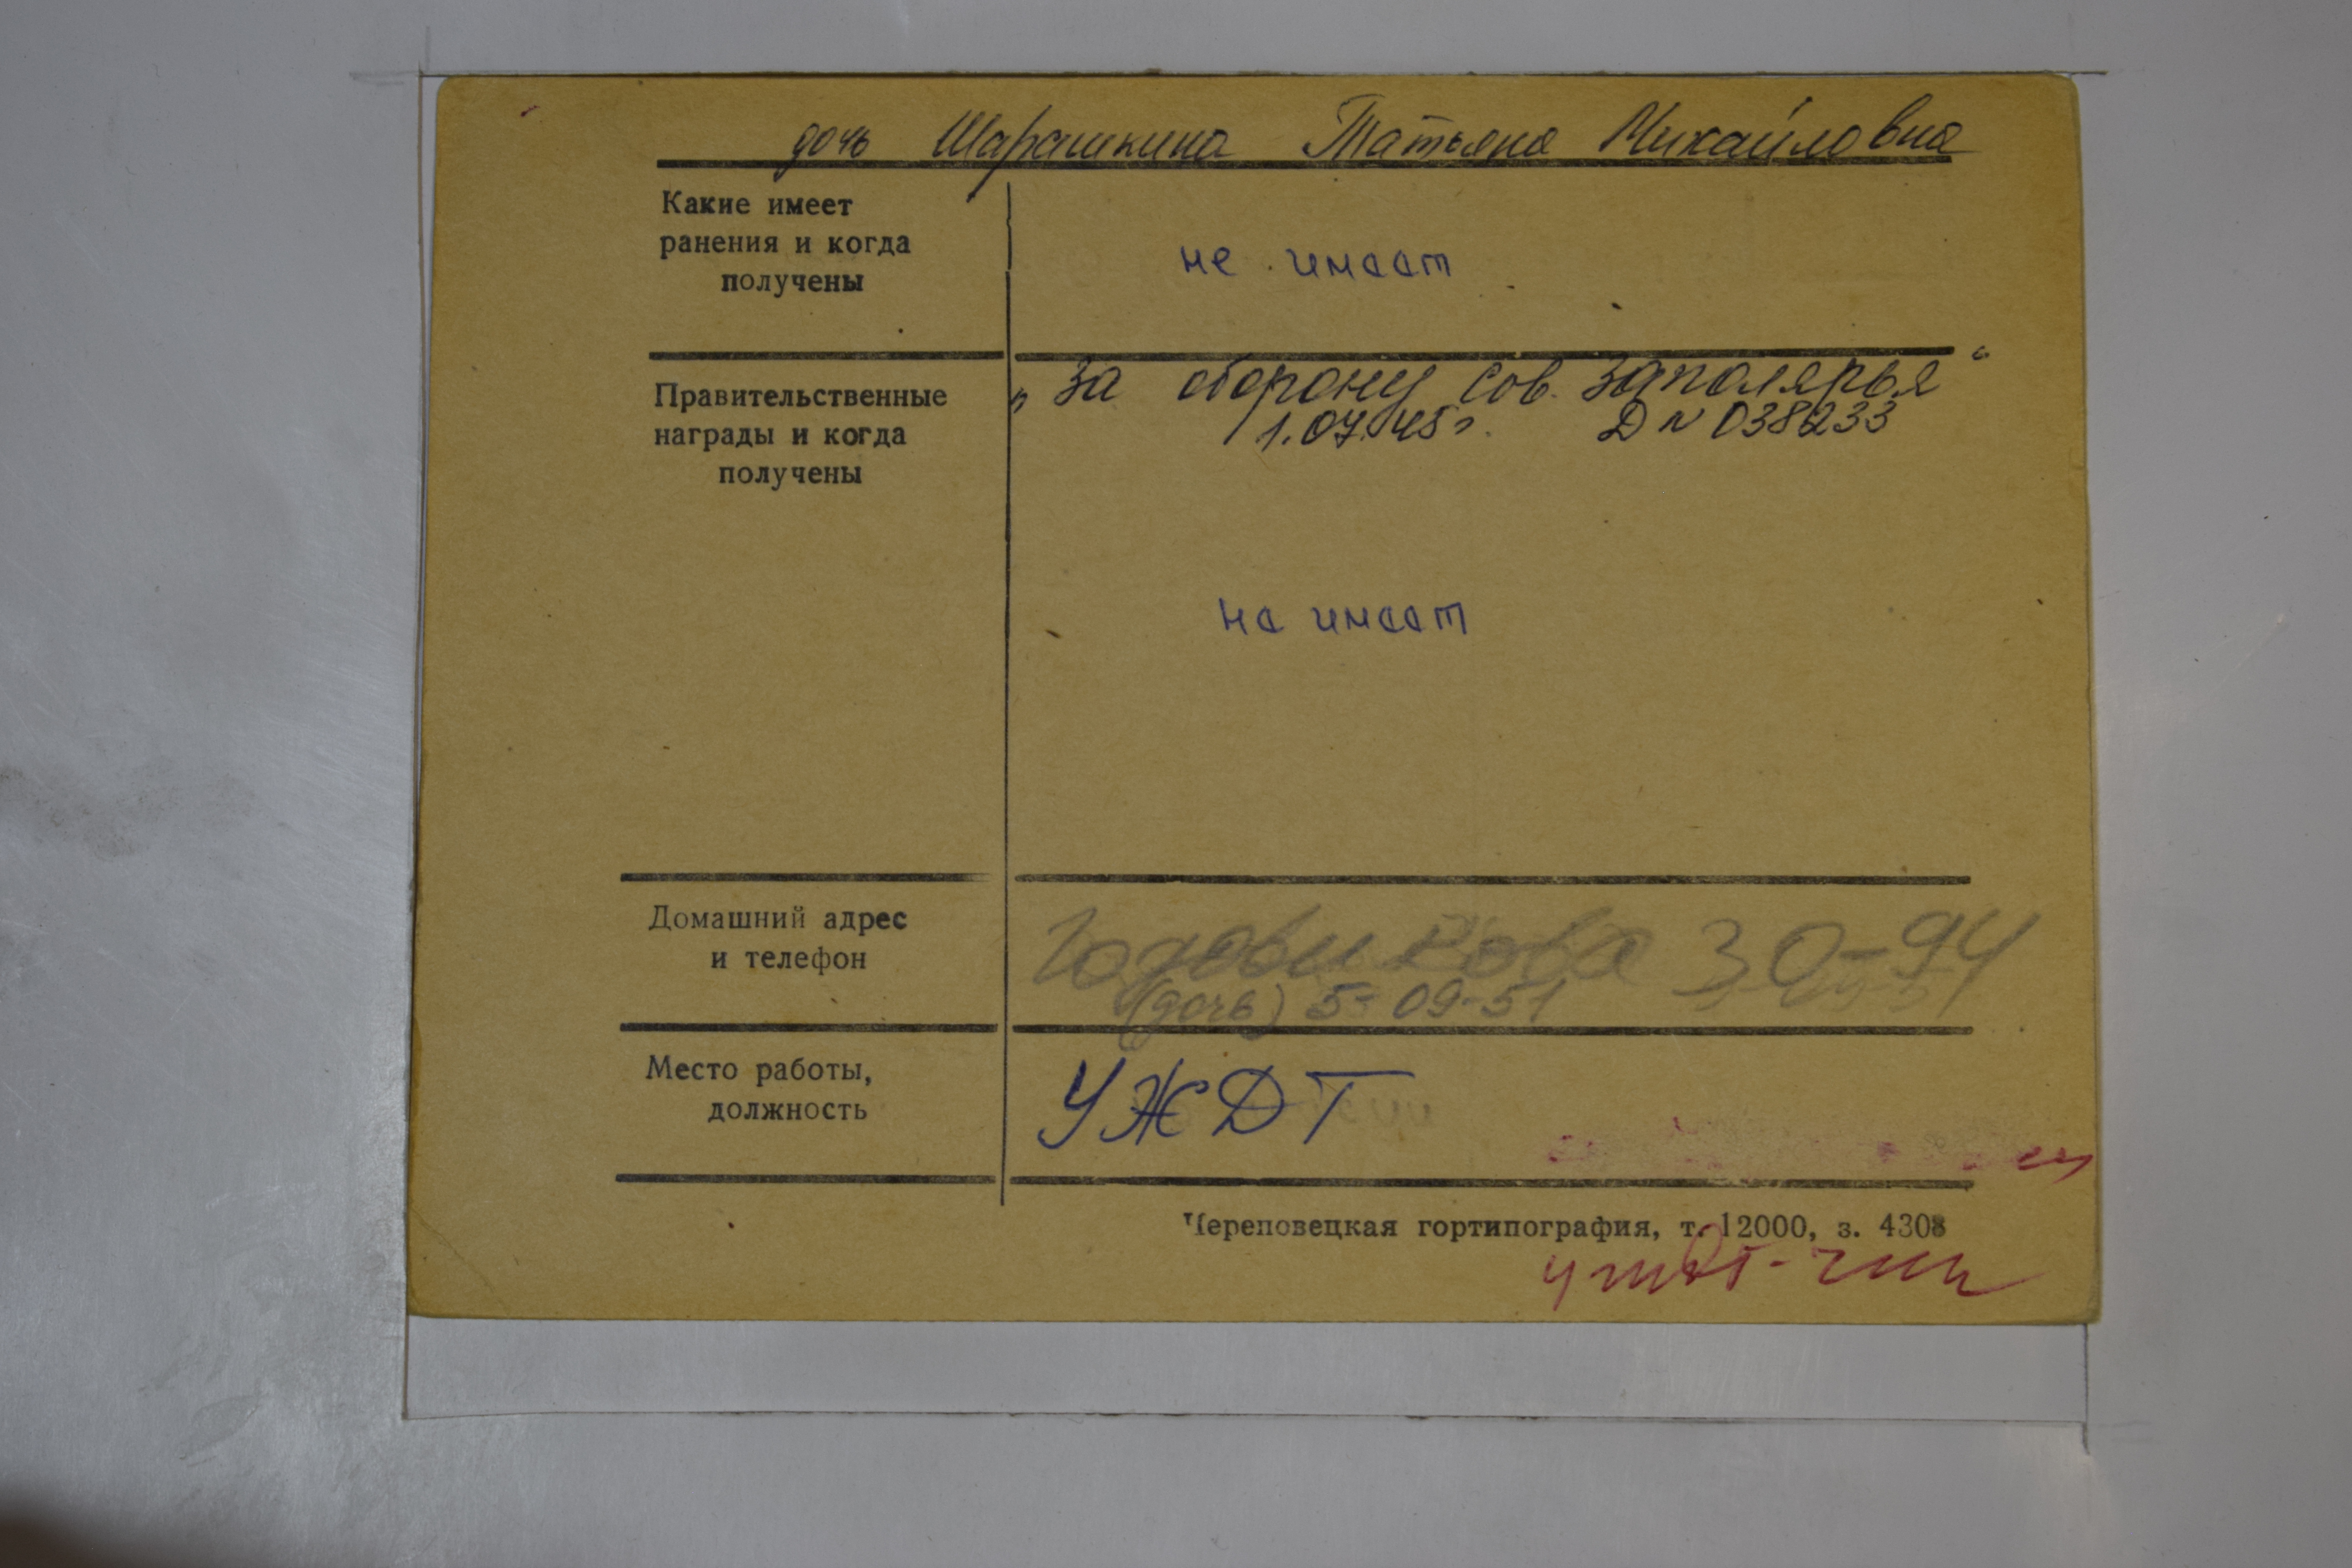 дочь Шарашкина Татьяна Михайловна
Какие имеет
ранения и когда
получены
не имеет
Правительственные
награды и когда
получены
„За оборону сов. Заполярья“
1.07.45г. Д N 038233
не имеет
Домашний адрес
и телефон
Годовикова 30-94
(дочь) 5-09-51
Место работы,
должность
УЖДТ
Череповецкая гортипография, т. 12000, з. 4308